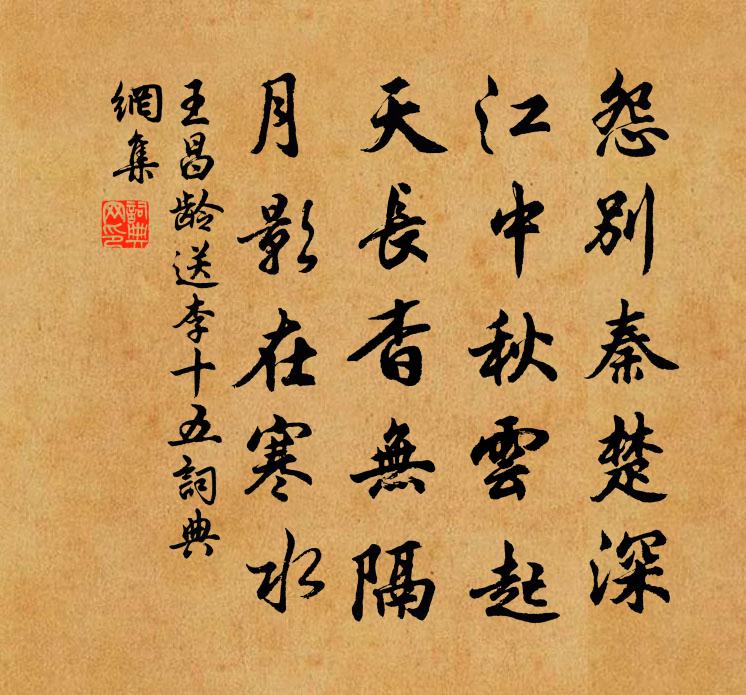 怨別秦楚深
江中秋雲起
天長杳無隔
月影在寒水
王昌龄送李十五詞典
網集
詞典
网印